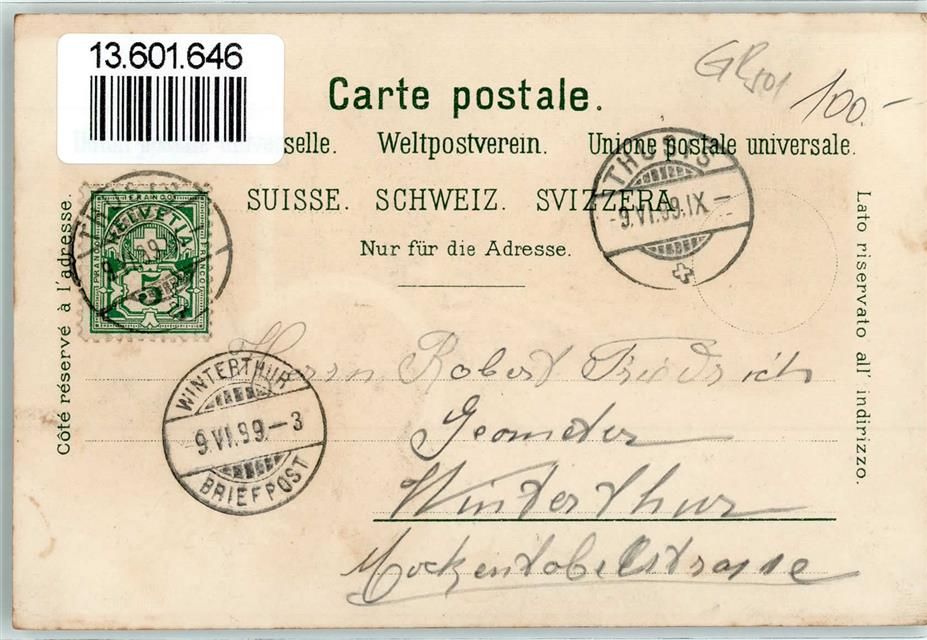 13.601.646
GR 501
100.-
Carte postale.
selle. Weltpostverein. Unione postale universale.
SUISSE. SCHWEIZ. SVIZZERA.
Nur für die Adresse.
Côté réservé à l'adresse.
Lato riservato all' indirizzo.
THUSIS
9.VI.99.IX-
FRANCO
HELVETIA
FRANCO
FRANCO
5
WINTERTHUR
9.VI.99.-3
BRIEFPOST
Herrn Robert Friedrich
Geometer
Winterthur